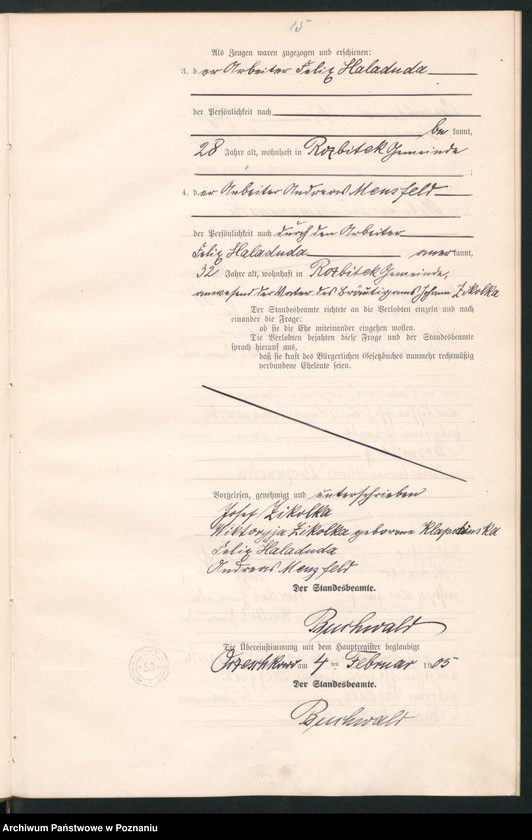 15
Als Zeugen waren zugezogen und erschienen:
3. der Arbeiter Felix Haladuda
der Persönlichkeit nach
be kannt,
28 Jahre alt, wohnhaft in Rozbitek Gemeinde
;
4. der Arbeiter Andreas Mensfeld
der Persönlichkeit nach durch den Arbeiter
Felix Haladuda aner kannt,
32 Jahre alt, wohnhaft in Rozbitek Gemeinde,
anwesend der Vater des Bräutigams Johann Zikolka
Der Standesbeamte richtete an die Verlobten einzeln und nach
einander die Frage:
ob sie die Ehe miteinander eingehen wollen.
Die Verlobten bejahten diese Frage und der Standesbeamte
sprach hierauf aus,
daß sie kraft des Bürgerlichen Gesetzbuchs nunmehr rechtmäßig
verbundene Eheleute seien.
Vorgelesen, genehmigt und unterschrieben
Josef Zikolka
Wiktoryja Zikolka geborene
Felix Haladuda
Andreas Menzfeld
Der Standesbeamte.
Buchwald
Die Übereinstimmung mit dem Hauptregister beglaubigt
am 4 ten Februar 1905
Der Standesbeamte.
Buchwald
Archiwum Państwowe w Poznaniu